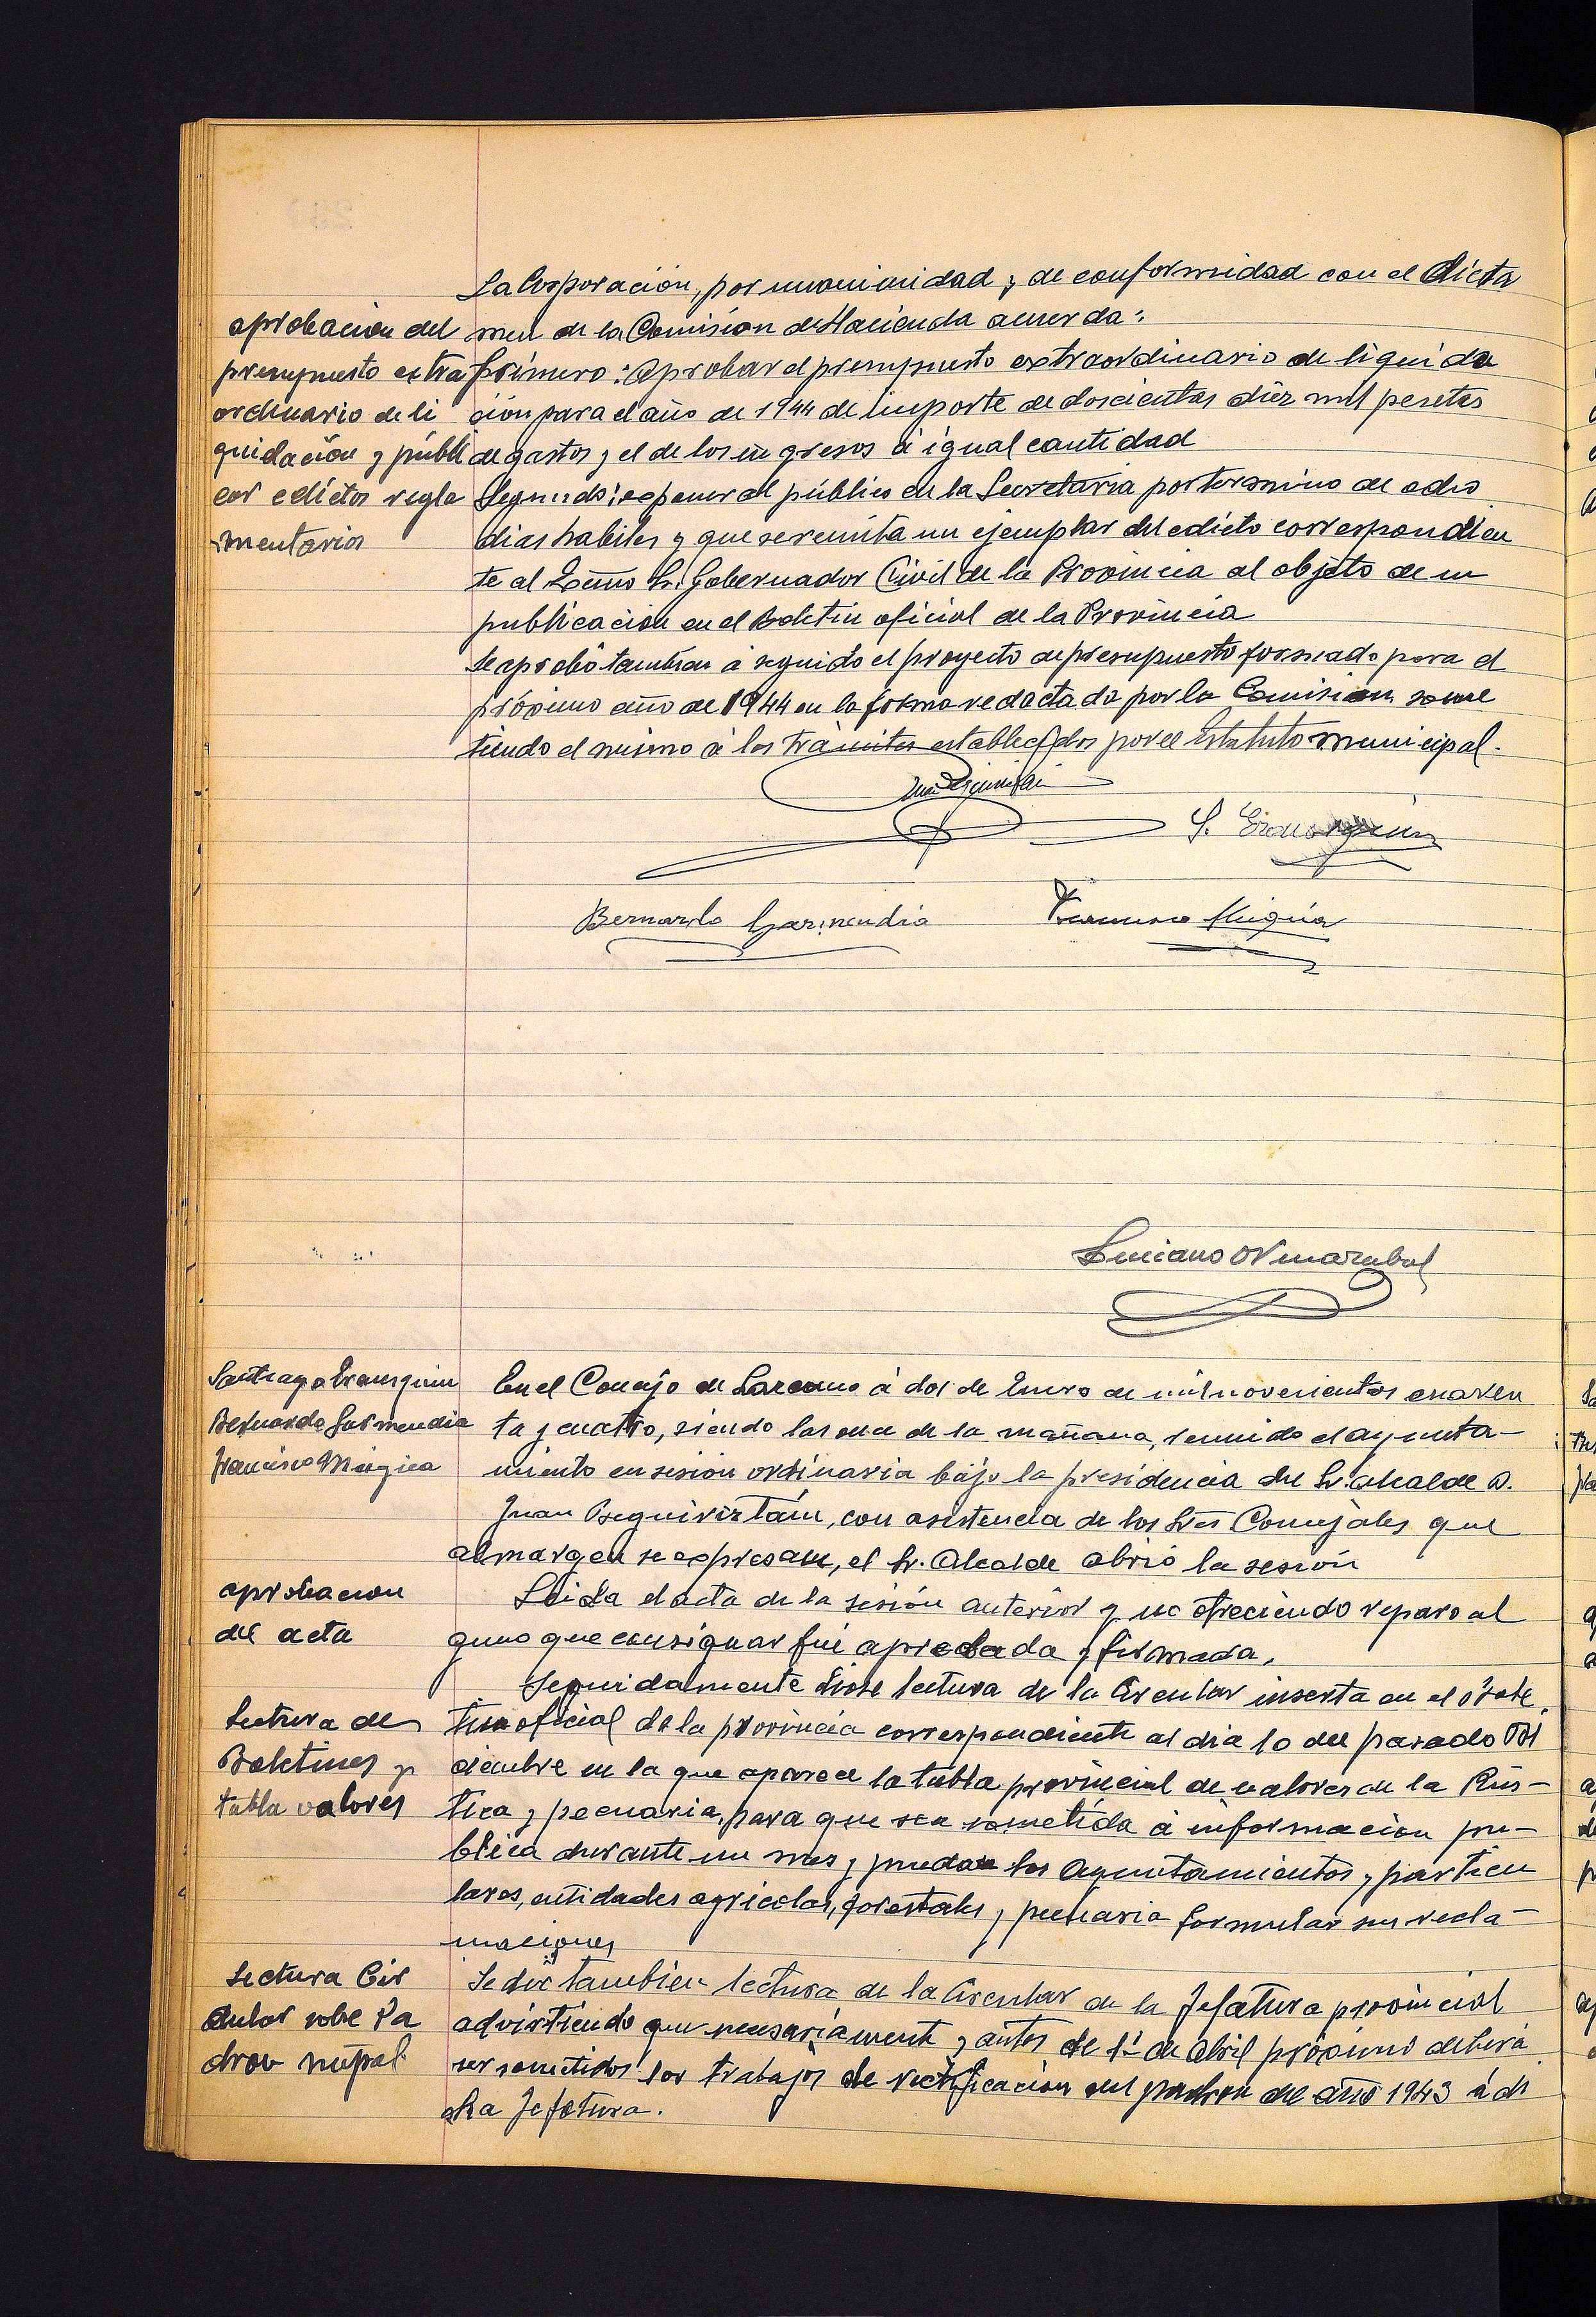 La Corporación, por unanimidad y de conformidad con el dicta
men de la Comisión de Hacienda acuerda:
Primero: Aprobar el presupuesto extraordinario de liquida
ción para el año de 1944 de importe de doscientas diez mil pesetas
de gastos y el de los ingresos á igual cantidad
Segundo: exponer al público en la Secretaria por termino de ocho
dias habiles y que se remita un ejemplar del edicto correspondien
te al Excmo Sr. Gobernador Civil de la Provincia al objeto de su
publicación en el Boletin oficial de la Provincia
Se aprobó tambien á seguido el proyecto de presupuesto formado para el
próximo año de 1944 en la forma redactada por la Comision some
tiendo el mismo á los trámites establecidos por el Estatuto municipal.
aprobacion del
presupuesto extra
ordinario de li
quidación y publi
car edictos regla
mentarios
S.
Bernardo Garmendia
Francisco Múgica
Luciano
Santiago
Bernardo Garmendia
Francisco Múgica
En el Concejo de Lazcano á dos de Enero de mil novecientos cuaren
ta y cuatro, siendo las once de la mañana, reunido el ayunta-
miento en sesion ordinaria bajo la presidencia del Sr. alcalde D.
Juan Beguiriztáin, con asistencia de los Sres Concejales que
al margen se expresan, el Sr. Alcalde abrió la sesión
aprobacion
del acta
Leida el acta de la sesión anterior y no ofreciendo reparo al
guno que consignar fué aprobada y firmada.
Lectura de
Boletines y
tabla valores
Seguidamente dióse lectura de la Circular inserta en el Bole
tin oficial de la provincia correspondiente al dia 10 del pasado Di
ciembre en la que aparece la tabla provincial de valores de la Rús-
tica y pecuaria, para que sea sometida á informacion pu-
blica durante un mes y puedan los Ayuntamientos y particu
lares, entidades agricolas, forestales y pecuaria formular sus recla-
maciones
Lectura Cir
cular sobe Pa
dron mupal.
Se dió tambien lectura de la Circular de la Jefatura provincial
advirtiendo que necesariamente y antes de 1º de Abril próximo deberá
ser sometidos los trabajos de rectificación del padron del año 1943 á di
cha Jefatura.